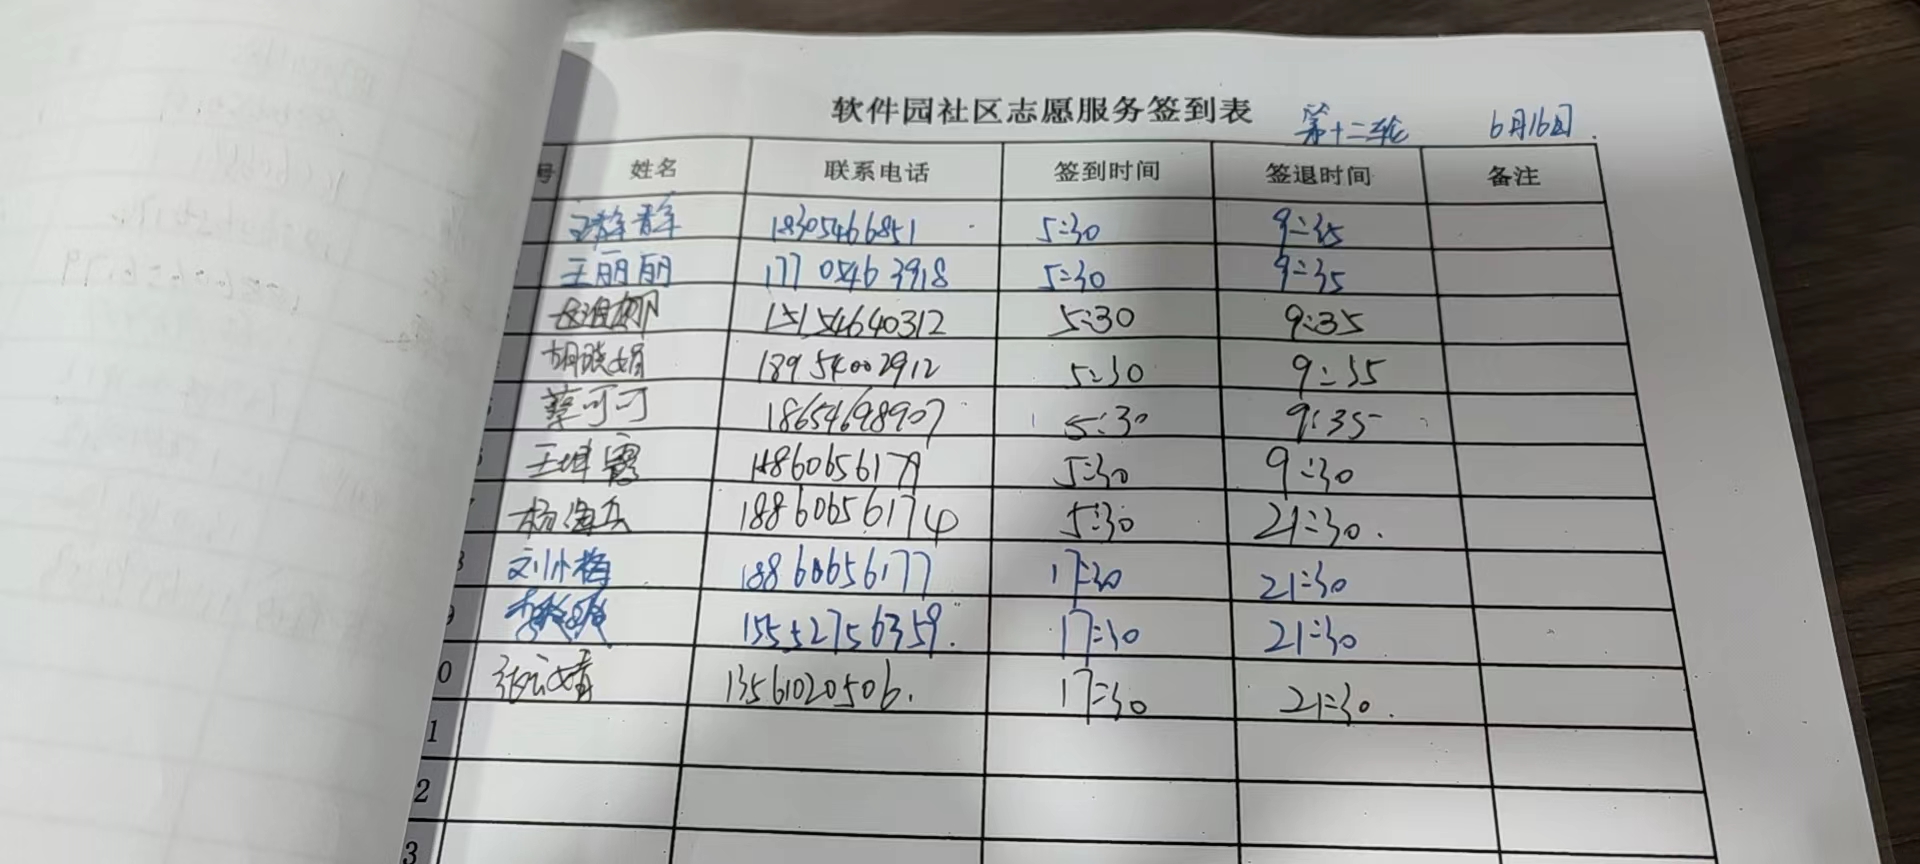 软件园社区志愿服务签到表 第十二轮 6月16日
号 姓名 联系电话 签到时间 签退时间 备注
王静静 18305466851 5:30 9:35
王丽丽 17705463918 5:30 9:35
15154640312 5:30 9:35
胡晓娟 18954002912 5:30 9:35
蔡可可 18654698907 5:30 9:35
王坤霞 5:30 9:30
杨海兵 18860656174 5:30 21:30.
刘小梅 18860656177 17:30 21:30
9 15552756359. 17:30 21:30
0 13561020506. 17:30 21:30.
1
2
3